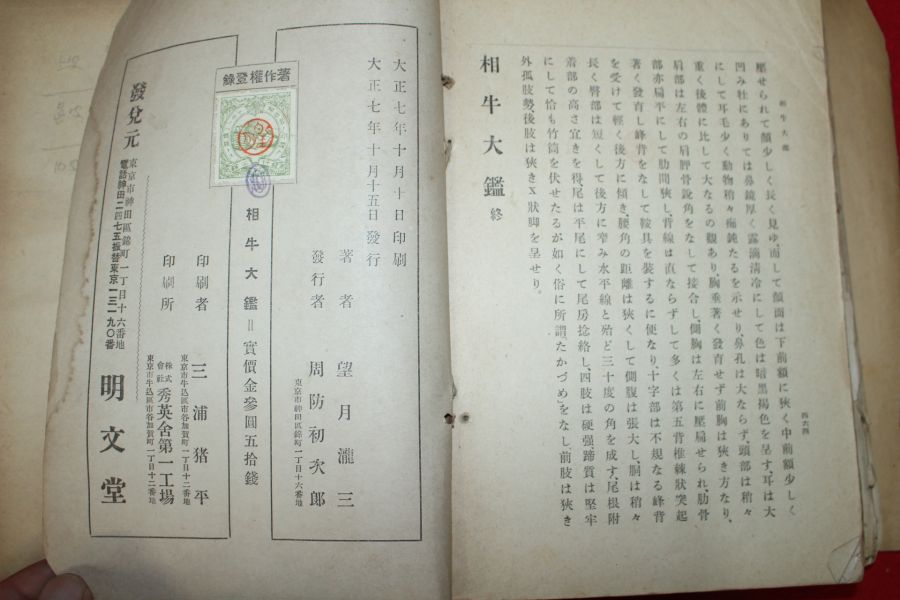 相牛大鑑
四六四
壓せられて顏少しく長く見ゆ、而して顏面は下前額に狹く中前額少しく
凹み牡にありては鼻鏡厚く露滴淸冷にして色は暗黑褐色を呈す、耳は大
にして耳毛少く動物稍々痴鈍たるを示せり、鼻孔は大ならず、頭部は稍々
重く後體に比して大なるの觀あり、胸垂著く發育せず前胸は狹き方なり、
肩部は左右の肩胛骨銳角をなして接合し、側胸は左右に壓扁せられ肋骨
部亦扁平にして肋間狹し、背線は直ならずして多くは第五背椎棘狀突起
著く發育し峰背をなして鞍具を裝するに便なり、十字部は不規なる峰背
を受けて輕く後方に傾き、腰角の距離は狹くして側腹は張大し、胴は稍々
長く臀部は短くして後方に窄み水平線と殆ど三十度の角を成す、尾根附
着部の高さ宜きを得、尾は平尾にして尾房捻絡し、四肢は硬强、蹄質は堅牢
にして恰も竹筒を伏せたるが如く俗に所謂「たかづめ」をなし前肢は狹き
外孤肢勢、後肢は狹きX狀脚を呈せり。
相牛大鑑 終
大正七年十月十日印刷
大正七年十月十五日發行
著者 望月瀧三
發行者 周防初次郎
東京市神田區錦町一丁目十六番地
著作權登錄
相牛大鑑 = 實價金參圓五拾錢
印刷者 三浦猪平
東京市牛込區市谷加賀町一丁目十二番地
印刷所 株式會社 秀英舍第一工場
東京市牛込區市谷加賀町一丁目十二番地
發兌元 東京市神田區錦町一丁目十六番地
電話神田二四七五振替東京一三一九〇番
明文堂